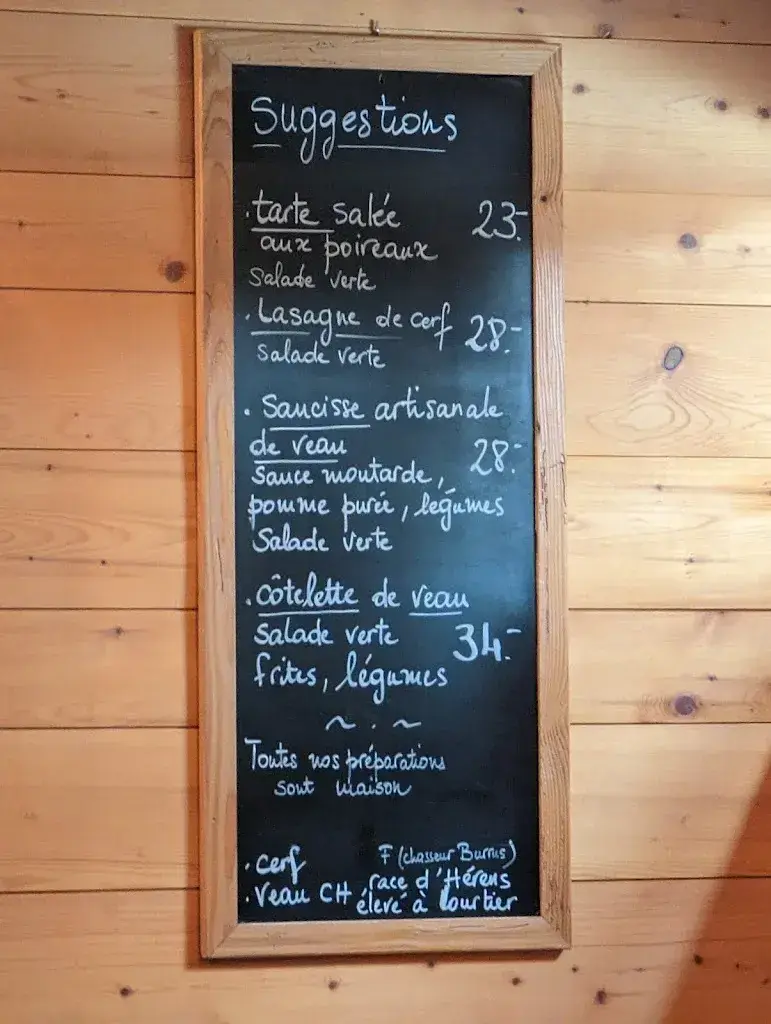 Suggestions
· tarte salée 23.-
aux poireaux
Salade verte
· Lasagne de cerf 28.-
Salade verte
· Saucisse artisanale
de veau 28.-
Sauce moutarde,
pomme purée, légumes
Salade verte
· côtelette de veau
Salade verte 34.-
frites, légumes
~ . ~
Toutes nos préparations
sont maison
· cerf F (chasseur Burrus)
· Veau CH race d'Hérens
élevé à Lourtier